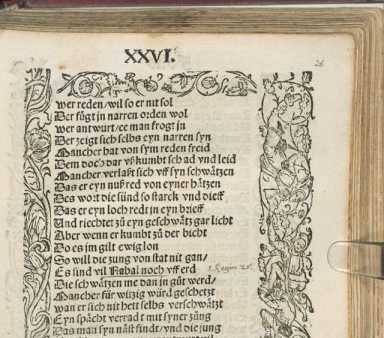 XXVI.
26
wer reden/wil so er nit sol
Der fügt jn narren orden wol
wer antwurt/ee man frogt jn
Der zeigt sich selbs eyn narren syn
Mancher hat von sym reden freid
Dem doch dar vß kumbt schad vnd leid
Mancher verlaßt sich vff syn schwätzen
Das er eyn nuß red von eyner hätzen
Des wort die sünd so starck vnd dieff
Das er eyn loch redt jn eyn brieff
Und riechtet zů eyn geschwätz gar licht
Aber wenn er kumbt zů der bicht
Do es jm gilt ewig lon
So will die zung von stat nit gan/
Es sind vil Nabal noch vff erd
Die schwätzen me dan jn gůt werd/
Mancher für witzig würd geschetzt
wan er sich nit hett selbs verschwätzt
Eyn spächt verrad t mit syner zung
Das man syn näst findt/vnd die jung